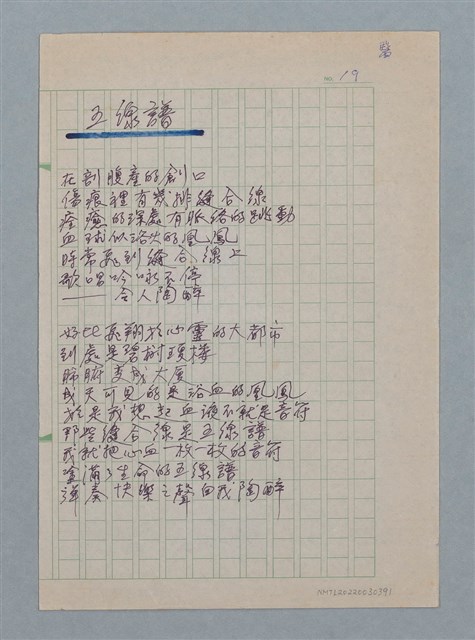 No. 19
五線譜
在剖腹產的創口
傷痕裡有幾排縫合線
痊癒的深處有脈絡的跳動
血球似浴火的鳳凰
時常飛到縫合線上
歌唱吟咏不停
——令人陶醉
好比飛翔於心靈的大都市
到處是碧樹頂樓
肺腑變成大廈
成天可見的是浴血的鳳凰
於是我想起血液不就是音符
那些縫合線是五線譜
我就把心血一枚一枚的音符
塗滿了生命的五線譜
彈奏快樂之聲自我陶醉
NMTL20220030391